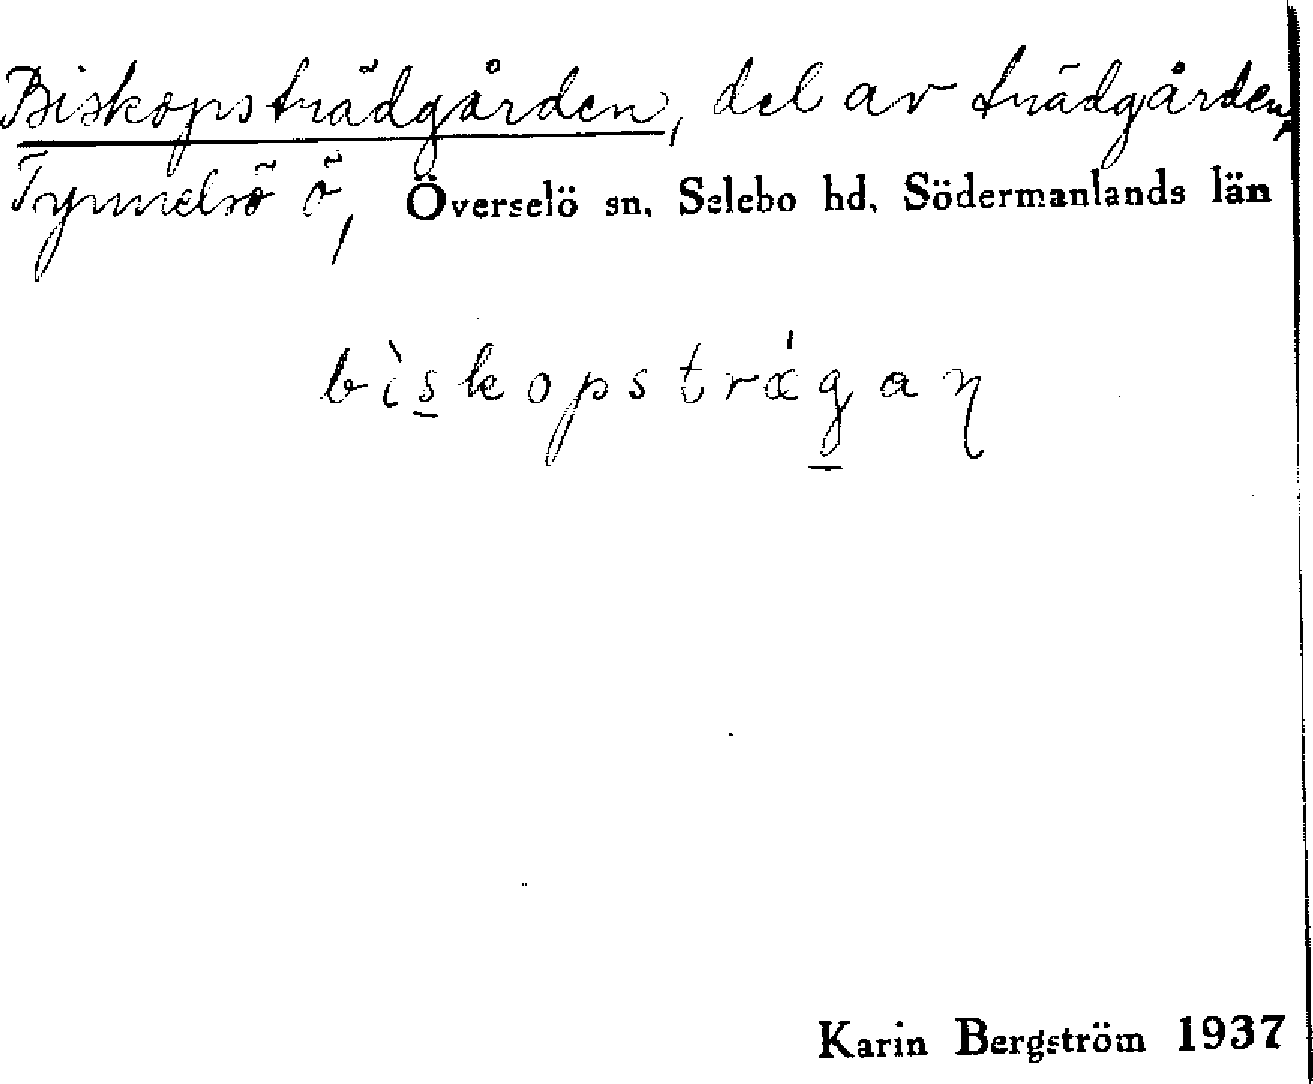 Biskopsträdgården, del av trädgården,
Tynnelsö ö, Överselö sn, Selebo hd, Södermanlands län
bìs̲kopstrǽg̲aɳ
Karin Bergström 1937